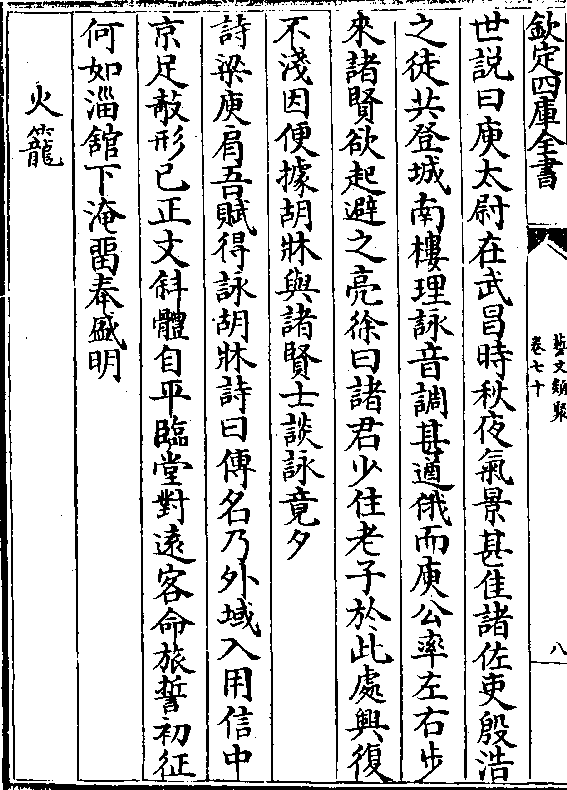 欽定四庫全書
藝文類聚
卷七十
八
世說曰庾太尉在武昌時秋夜氣景甚佳諸佐吏殷浩
之徒共登城南樓理詠音調甚遒俄而庾公率左右步
來諸賢欲起避之亮徐曰諸君少住老子於此處興復
不淺因便據胡牀與諸賢士談詠竟夕
詩梁庾肩吾賦得詠胡牀詩曰傳名乃外域入用信中
京足敧形已正文斜體自平臨堂對遠客命旅誓初征
何如淄館下淹留奉盛明
火籠